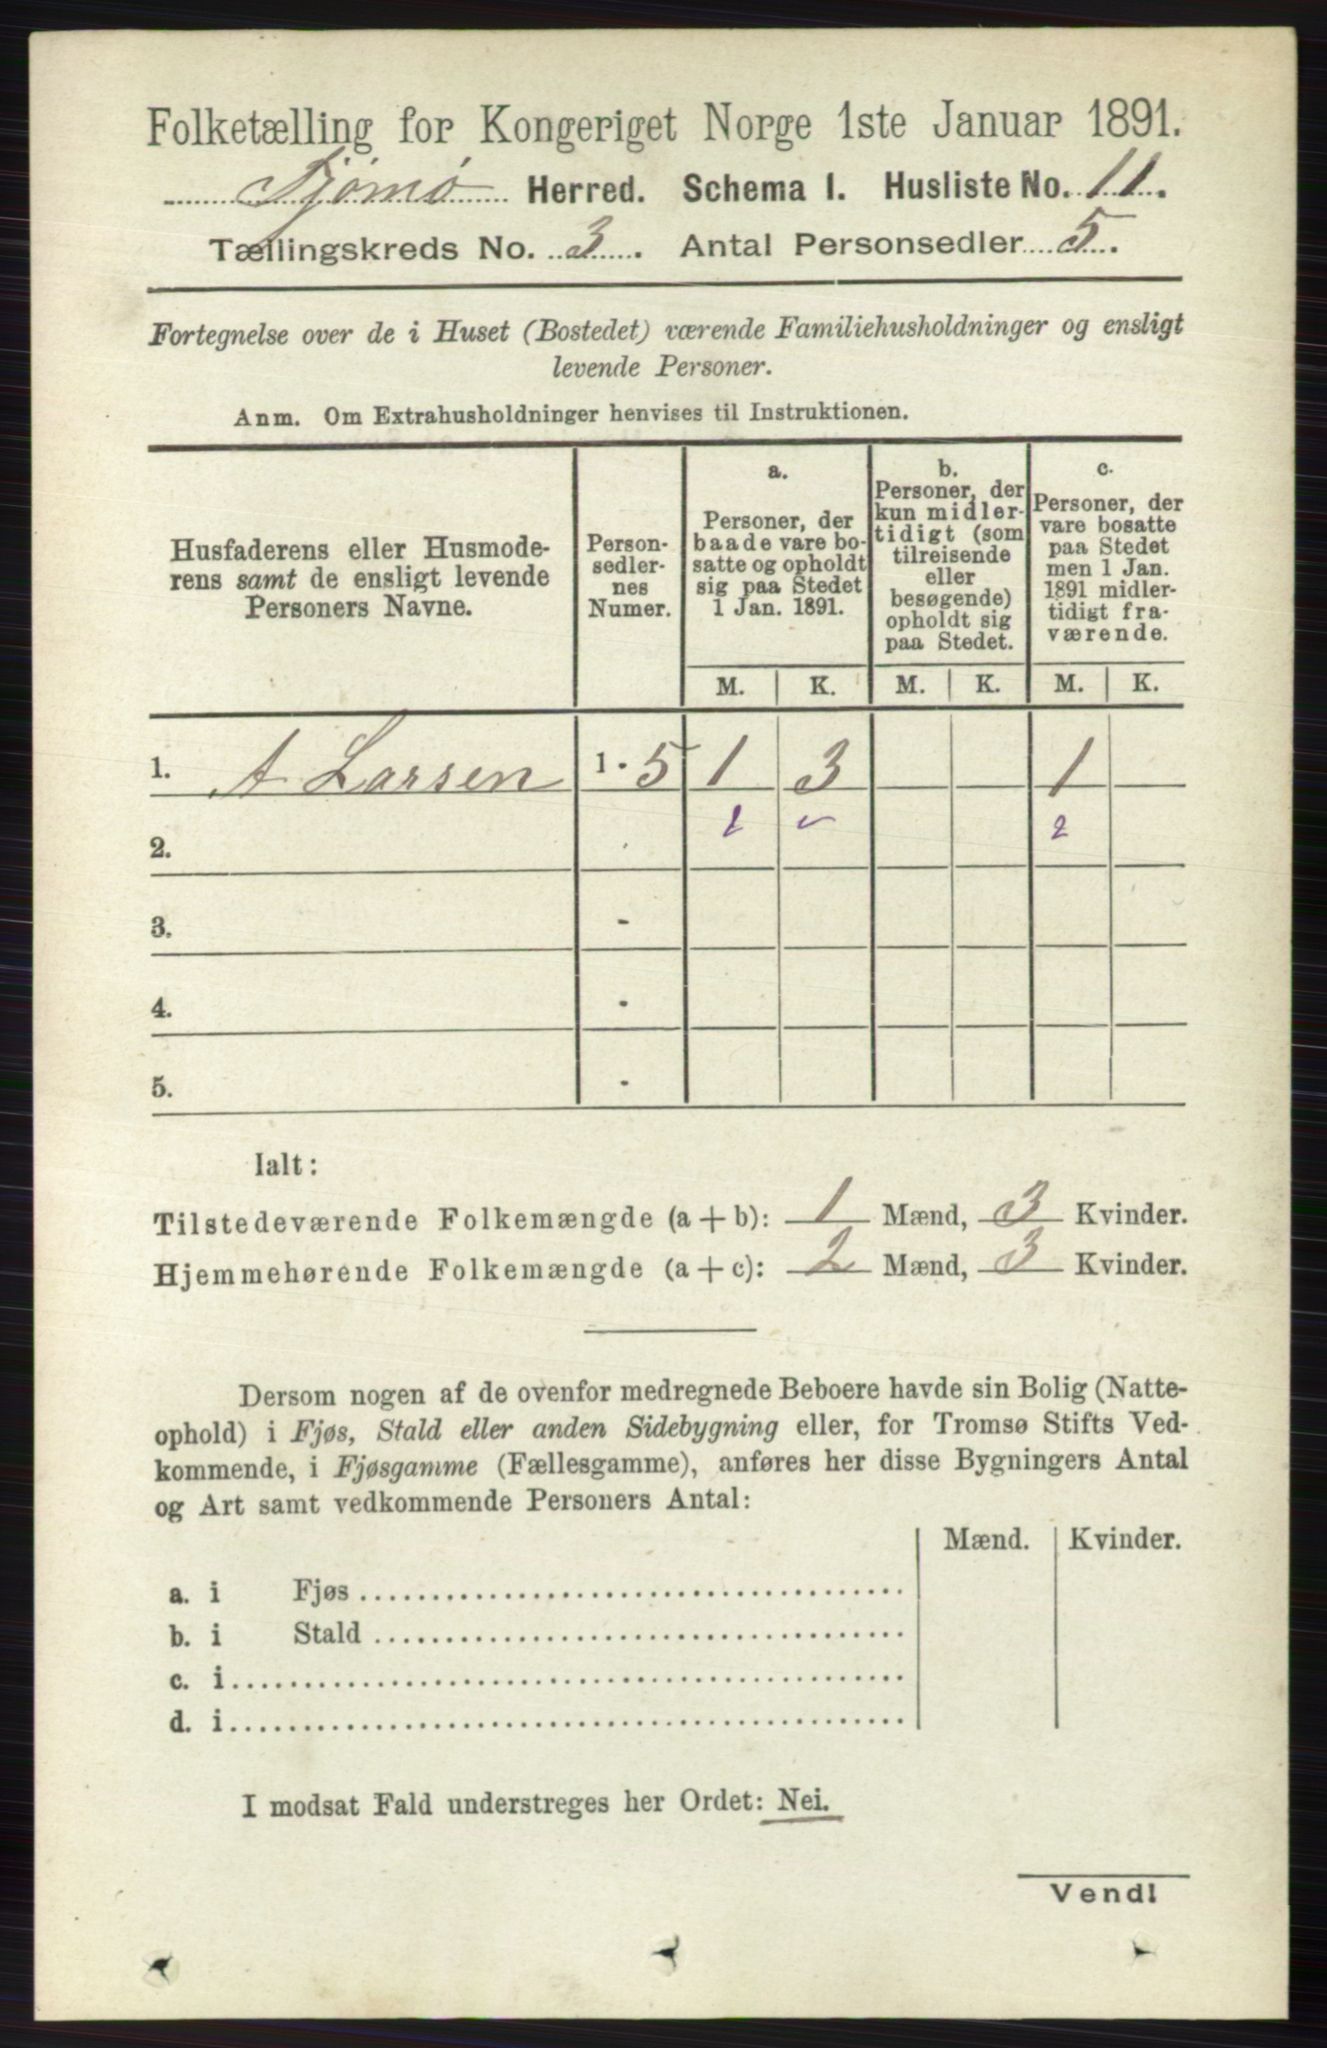 Folketælling for Kongeriget Norge 1ste Januar 1891.
Tjømø Herred. Schema I. Husliste No. 11.
Tællingskreds No. 3. Antal Personsedler 5.
Fortegnelse over de i Huset (Bostedet) værende Familiehusholdninger og ensligt
levende Personer.
Anm. Om Extrahusholdninger henvises til Instruktionen.
Husfaderens eller Husmode-
rens samt de ensligt levende
Personers Navne.
Person-
sedler-
nes
Numer.
a.
Personer, der
baade vare bo-
satte og opholdt
sig paa Stedet
1 Jan. 1891.
b.
Personer, der
kun midler-
tidigt (som
tilreisende
eller
besøgende)
opholdt sig
paa Stedet.
c.
Personer, der
vare bosatte
paa Stedet
men 1 Jan.
1891 midler-
tidigt fra-
værende.
M. K. M. K. M. K.
1. A Larsen 1 - 5 1 3 1
2. 2
3. -
4. -
5. -
Ialt:
Tilstedeværende Folkemængde (a + b): 1 Mænd, 3 Kvinder.
Hjemmehørende Folkemængde (a + c): 2 Mænd, 3 Kvinder.
Dersom nogen af de ovenfor medregnede Beboere havde sin Bolig (Natte-
ophold) i Fjøs, Stald eller anden Sidebygning eller, for Tromsø Stifts Ved-
kommende, i Fjøsgamme (Fællesgamme), anføres her disse Bygningers Antal
og Art samt vedkommende Personers Antal:
Mænd. Kvinder.
a. i Fjøs
b. i Stald
c. i
d. i
I modsat Fald understreges her Ordet: Nei.
Vend!